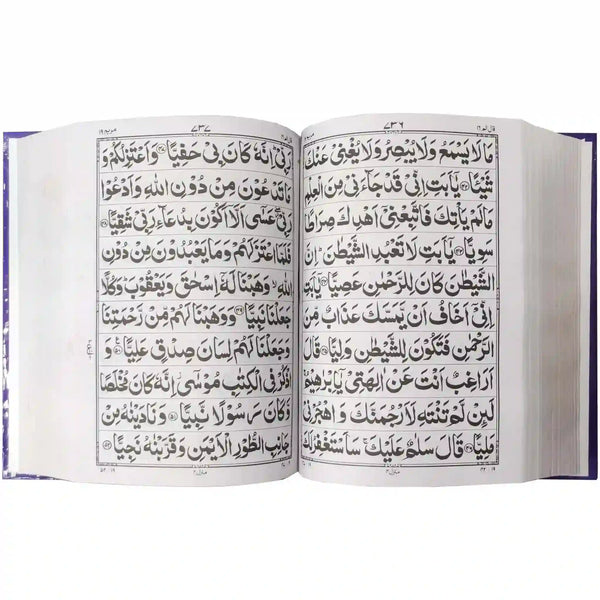 قال الم ١٦ ٧٣٦ مريم ١٩
مَا لَا يَسْمَعُ وَلَا يُبْصِرُ وَلَا يُغْنِيْ عَنْكَ
شَيْـًٔا ﴿٤٢﴾ يٰۤاَبَتِ اِنِّيْ قَدْ جَآءَنِيْ مِنَ الْعِلْمِ
مَا لَمْ يَاْتِكَ فَاتَّبِعْنِيْۤ اَهْدِكَ صِرَاطًا
سَوِيًّا ﴿٤٣﴾ يٰۤاَبَتِ لَا تَعْبُدِ الشَّيْطٰنَ اِنَّ
الشَّيْطٰنَ كَانَ لِلرَّحْمٰنِ عَصِيًّا ﴿٤٤﴾ يٰۤاَبَتِ
اِنِّيْۤ اَخَافُ اَنْ يَّمَسَّكَ عَذَابٌ مِّنَ
الرَّحْمٰنِ فَتَكُوْنَ لِلشَّيْطٰنِ وَلِيًّا ﴿٤٥﴾ قَالَ
اَرَاغِبٌ اَنْتَ عَنْ اٰلِهَتِيْ يٰۤاِبْرٰهِيْمُ
لَئِنْ لَّمْ تَنْتَهِ لَاَرْجُمَنَّكَ وَاهْجُرْنِيْ
مَلِيًّا ﴿٤٦﴾ قَالَ سَلٰمٌ عَلَيْكَ سَاَسْتَغْفِرُ لَكَ
منزل ٤
قال الم ١٦ ٧٣٧ مريم ١٩
رَبِّيْ اِنَّهٗ كَانَ بِيْ حَفِيًّا ﴿٤٧﴾ وَاَعْتَزِلُكُمْ وَ
مَا تَدْعُوْنَ مِنْ دُوْنِ اللّٰهِ وَاَدْعُوْا
رَبِّيْ عَسٰۤى اَلَّاۤ اَكُوْنَ بِدُعَآءِ رَبِّيْ شَقِيًّا ﴿٤٨﴾
فَلَمَّا اعْتَزَلَهُمْ وَمَا يَعْبُدُوْنَ مِنْ دُوْنِ
اللّٰهِ وَهَبْنَا لَهٗۤ اِسْحٰقَ وَيَعْقُوْبَ وَكُلًّا
جَعَلْنَا نَبِيًّا ﴿٤٩﴾ وَوَهَبْنَا لَهُمْ مِّنْ رَّحْمَتِنَا
وَجَعَلْنَا لَهُمْ لِسَانَ صِدْقٍ عَلِيًّا ﴿٥٠﴾ وَ
اذْكُرْ فِي الْكِتٰبِ مُوْسٰۤى اِنَّهٗ كَانَ مُخْلَصًا
وَّكَانَ رَسُوْلًا نَّبِيًّا ﴿٥١﴾ وَنَادَيْنٰهُ مِنْ
جَانِبِ الطُّوْرِ الْاَيْمَنِ وَقَرَّبْنٰهُ نَجِيًّا ﴿٥٢﴾
منزل ٤